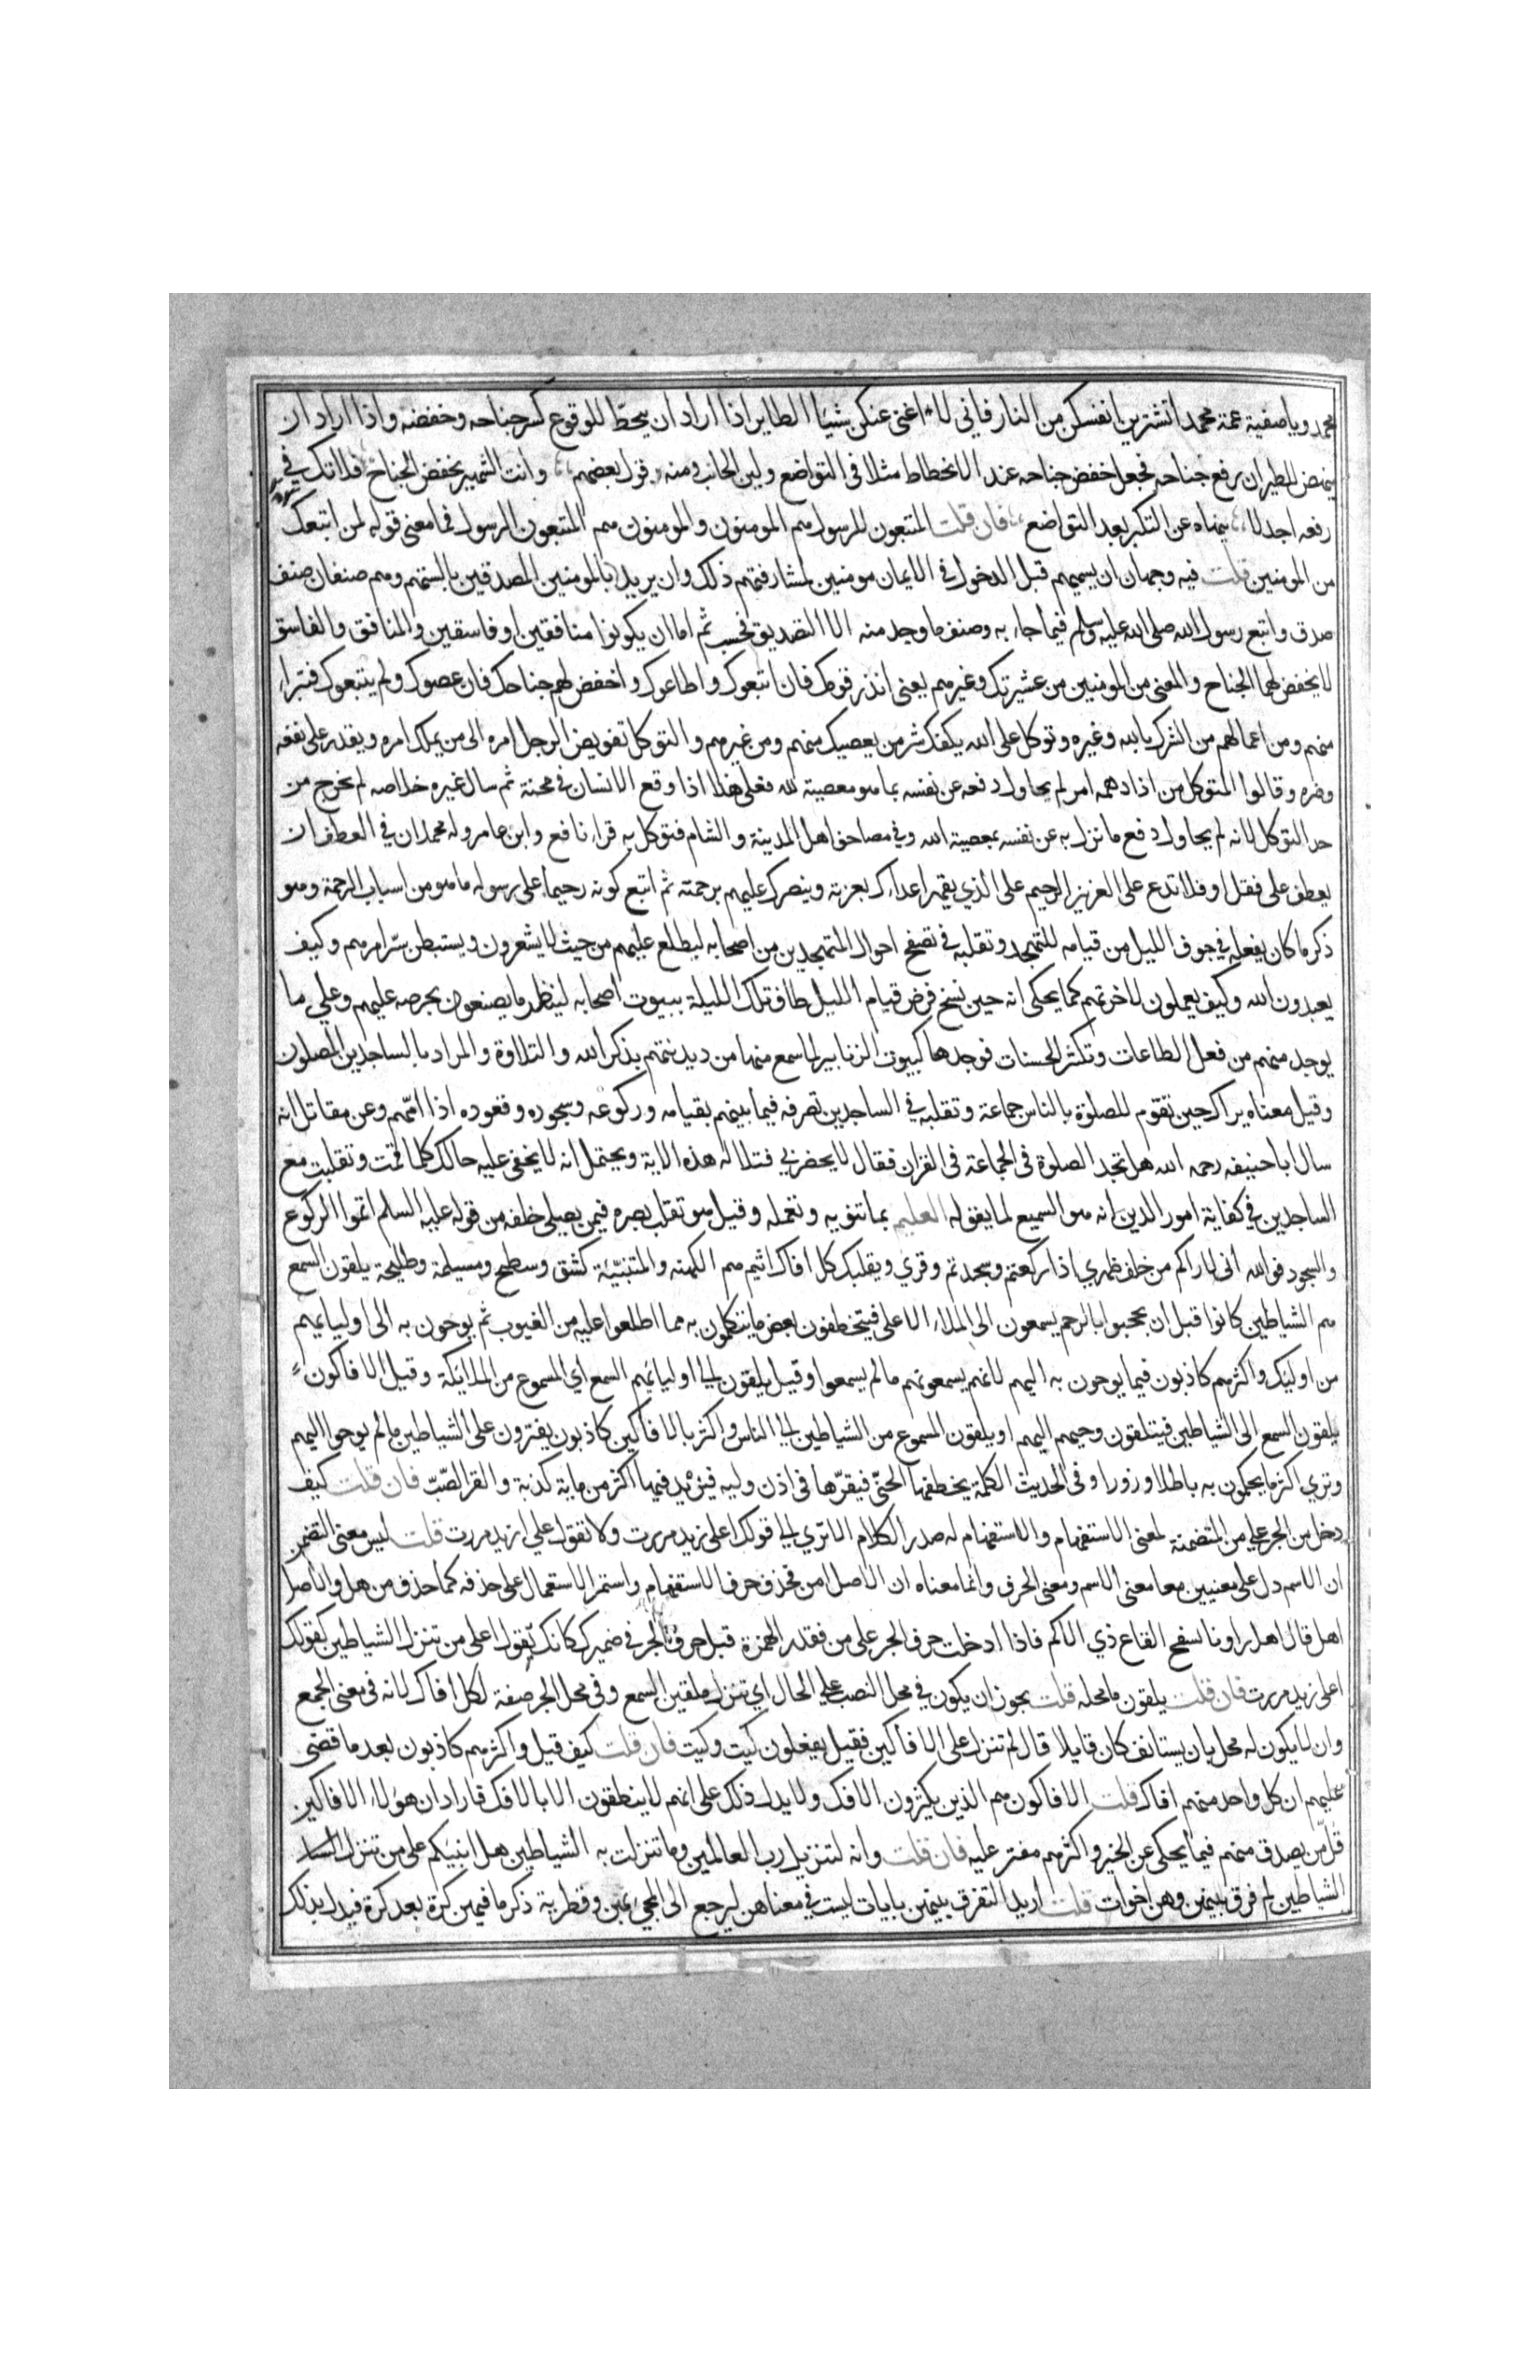 محمد ويا صفية عمة محمد اتشترين انفسكن من النار فاني لا اغني عنكن شيئا الطاير اذا اراد ان ينحط للوقوع كسر جناحه وخفضه واذا اراد ان
ينهض للطيران رفع جناحه فجعل خفض جناحه عند الانحطاط مثلا في التواضع ولين الجانب ومنه قول بعضهم وانت الشهير بخفض الجناح فلا تك في
رفعه اجدلا ينهاه عن التكبر بعد التواضع فان قلت المتبعون للرسول هم المومنون والمومنون هم المتبعون الرسول فما معنى قوله لمن اتبعك
من المومنين قلت فيه وجهان ان يسميهم قبل الدخول في الايمان مومنين لمشارفتهم ذلك وان يريد بالمومنين المصدقين بالسنتهم وهم صنفان صنف
صدق واتبع رسول الله صلى الله عليه وسلم فيما جاء به وصنف ما وجد منه الا التصديق فحسب ثم اما ان يكونوا منافقين او فاسقين والمنافق والفاسق
لا يخفض لهما الجناح والمعنى من المومنين من عشيرتك وغيرهم يعني انذر قومك فان اتبعوك واطاعوك واخفض لهم جناحك فان عصوك ولم يتبعوك فتبرا
منهم ومن اعمالهم من الشرك بالله وغيره وتوكل على الله يكفك شر من يعصيك منهم ومن غيرهم والتوكل تفويض الرجل امره الى من يملك امره ويقدر على نفعه
وضره وقالوا المتوكل من اذا دهمه امر لم يحاول دفعه عن نفسه بما هو معصية لله فعلى هذا اذا وقع الانسان في محنة ثم سال غيره خلاصه لم يخرج من
حد التوكل لانه لم يحاول دفع ما نزل به عن نفسه بمعصية الله وفي مصاحف اهل المدينة والشام فتوكل به قراء نافع وابن عامر وله محملان في العطف ان
يعطف على فقل او فلا تدع على العزيز الرحيم على الذي يقهر اعداءك بعزته وينصرك عليهم برحمته ثم اتبع كونه رحيما على رسوله ما هو من اسباب الرحمة وهو
ذكر ما كان يفعله في جوف الليل من قيامه للتهجد وتقلبه في تصفح احوال المتهجدين من اصحابه ليطلع عليهم من حيث لا يشعرون ويستبطن سر امرهم وكيف
يعبدون الله وكيف يعملون لاخرتهم كما يحكى انه حين نسخ فرض قيام الليل طاف تلك الليلة ببيوت اصحابه لينظر ما يصنعون بحرصه عليهم وعلى ما
يوجد منهم من فعل الطاعات وتكثر الحسنات فوجدها كبيوت الزنابير لما سمع منها من دندنتهم بذكر الله والتلاوة والمراد بالساجدين المصلون
وقيل معناه يراك حين تقوم للصلوة بالناس جماعة وتقلبه في الساجدين تصرفه فيما بينهم بقيامه وركوعه وسجوده وقعوده اذا امهم وعن مقاتل انه
سال ابا حنيفه رحمه الله هل تجد الصلوة في الجماعة في القران فقال لا يحضرني فتلا له هذه الاية ويحتمل انه لا يخفى عليه حالك كلما قمت وتقلبت مع
الساجدين في كفاية امور الدين انه هو السميع لما يقوله العليم بما تنويه وتعمله وقيل هو تقلب بصره فيمن يصلي خلفه من قوله عليه السلم اتموا الركوع
والسجود فوالله اني لاراكم من خلف ظهري اذا ركعتم وسجدتم وقري ويقلبك كل افاك اثيم هم الكهنه والمتنبئة كشق وسطيح ومسيلمة وطليحة يلقون السمع
هم الشياطين كانوا قبل ان يحجبوا بالرجم يسمعون الى الملاء الاعلى فيتخطفون بعض ما يتكلمون به مما اطلعوا عليه من الغيوب ثم يوحون به الى اوليائهم
من اوليك واكثرهم كاذبون فيما يوحون به اليهم لانهم يسمعونهم ما لم يسمعوا وقيل يلقون الى اوليائهم السمع اي المسموع من الملائكة وقيل الافاكون
يلقون السمع الى الشياطين فيتلقون وحيهم اليهم او يلقون المسموع من الشياطين الى الناس واكثر بالافاكين كاذبون يفترون على الشياطين ما لم يوحوا اليهم
وتري اكثر ما يحكمون به باطلا وزورا وفي الحديث الكلمة يخطفها الجني فيقرها في اذن وليه فيزيد فيها اكثر من ماية كذبة والقر الصب فان قلت كيف
دخل من الجر على من المتضمنة لمعنى الاستفهام والاستفهام له صدر الكلام الا تري الى قولك اعلى زيد مررت ولا تقول علي ازيد مررت قلت ليس معنى التضمن
ان الاسم دل على معنيين معا معنى الاسم ومعنى الحرف وانما معناه ان الاصل امن فحذف حرف الاستفهام واستمر الاستعمال على حذفه كما حذف من هل والاصل
اهل قال اهل راونا بسفح القاع ذي الاكم فاذا ادخلت حرف الجر على من فقدر الهمزة قبل حرف الجر في ضميرك كانك تقول اعلى من تنزل الشياطين كقولك
اعلى زيد مررت فان قلت يلقون ما محله قلت يجوز ان يكون في محل النصب على الحال اي تنزل ملقين السمع وفي محل الجر صفة لكل افاك لانه في معنى الجمع
وان لا يكون له محل بان يستانف كان قايلا قال لم تنزل على الافاكين فقيل يفعلون كيت وكيت فان قلت كيف قيل واكثرهم كاذبون بعد ما قضى
عليهم ان كل واحد منهم افاك قلت الافاكون هم الذين يكثرون الافك ولا يدل ذلك على انهم لا ينطقون الا بالافك فاراد ان هولاء الافاكين
قل من يصدق منهم فيما يحكى عن الجني واكثرهم مفتر عليه فان قلت وانه لتنزيل رب العالمين وما تنزلت به الشياطين هل انبيكم على من تنزل
الشياطين لم فرق بينهن وهن اخوات قلت اريد التفرق بينهن بايات ليست في معناهن ليرجع الى المجي بهن وتطرية ذكر ما فيهن كرة بعد كرة فيدل بذلك